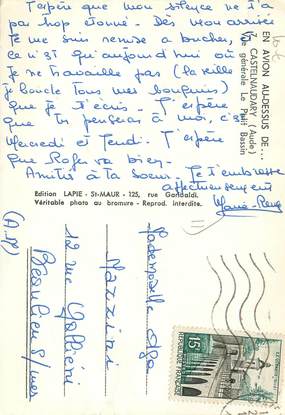 J'espère que mon silence ne t'a
pas trop étonné. Dès mon arrivée
je me suis remise à bucher,
ce n'est qu'aujourd'hui où
je ne travaille pas (la veille
je boucle tous mes bouquins)
que je t'écris. J'espère
que tu penseras à moi, c'est
Mercredi et Jeudi. J'espère
que va bien.
Amitiés à ta soeur. Je t'embrasse
affectueusement
EN AVION AU-DESSUS DE...
CASTELNAUDARY (Aude)
Vue générale Le Petit Bassin
Edition LAPIE - St-MAUR - 125, rue Garibaldi.
Véritable photo au bromure - Reprod. interdite.
Mademoiselle Olga
12 rue Galliéni
Beaulieu s/mer
(A.M)
15F
REPUBLIQUE FRANÇAISE